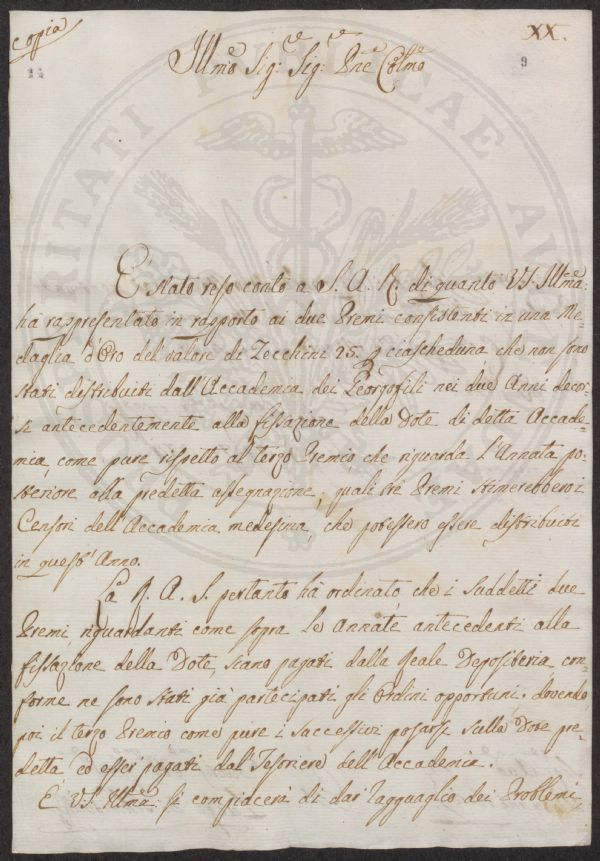 copia
XX.
9
Illmo Sigre Sigre Pne Colmo
È stato reso conto a S. A. R. di quanto VS. Illma:
ha rappresentato in rapporto ai due Premi consistenti in una Me-
daglia d'Oro del valore di Zecchini 25. p ciascheduna che non sono
stati distribuiti dall'Accademia dei Georgofili nei due Anni decor-
si antecedentemente alla fissazione della Dote di detta Accade-
mia, come pure rispetto al terzo Premio che riguarda l'Annata po-
steriore alla predetta assegnazione, quali tre Premi stimerebbero i
Censori dell'Accademia medesima, che potessero essere distribuiti
in quest'Anno.
La R. A. S. pertanto ha ordinato che i suddetti due
Premi riguardanti come sopra le Annate antecedenti alla
fissazione della Dote, siano pagati dalla Reale Depositeria con-
forme ne sono stati già partecipati gli Ordini opportuni. dovendo
poi il terzo Premio come pure i successivi posarsi sulla Dote pre-
detta, ed esser pagati dal Tesoriere dell'Accademia.
E VS. Illma: si compiacerà di dar ragguaglio dei Problemi,